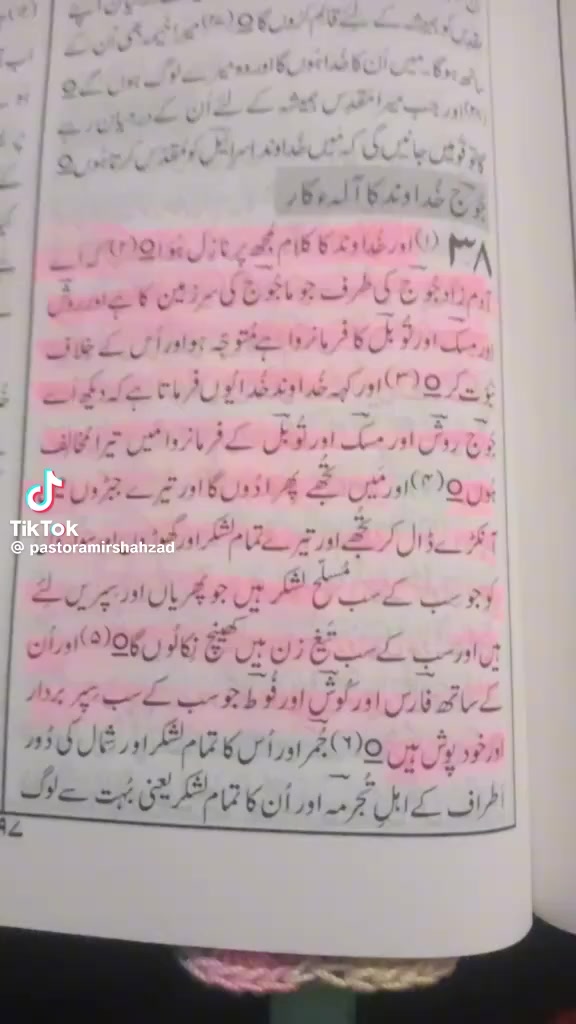 مقدس کو ہمیشہ کے لئے قائم کروں گا O (۲۷) میرا خیمہ بھی اُن کے
ساتھ ہوگا۔ میں اُن کا خُدا ہوں گا اور وہ میرے لوگ ہوں گے O
(۲۸) اور جب میرا مقدس ہمیشہ کے لئے اُن کے درمیان رہے
گا تو قومیں جانیں گی کہ مَیں خُداوند اسرائیل کو مُقدّس کرتا ہوں O
جُوج خُداوند کا آلہء کار
۳۸ (۱) اور خُداوند کا کلام مُجھ پر نازِل ہُوا O (۲) کہ اَے
آدم زاد جُوج کی طرف جو ماجُوج کی سرزمین کا ہے اور روش
اور مسک اور تُوبل کا فرمانروا ہے مُتوجہ ہو اور اُس کے خلاف
نبُوّت کر O (۳) اور کہہ خُداوند خُدا یُوں فرماتا ہے کہ دیکھ اَے
جُوج روش اور مسک اور تُوبل کے فرمانروا مَیں تیرا مُخالف
ہُوں O (۴) اور مَیں تُجھے پھرا دُوں گا اور تیرے جبڑوں میں
آنکڑے ڈال کر تُجھے اور تیرے تمام لشکر اور گھوڑوں اور
کو جو سب کے سب مُسلّح لشکر ہیں جو پھریاں اور سپریں لئے
ہیں اور سب کے سب تیغ زن ہیں کھینچ نِکالُوں گا O (۵) اور اُن
کے ساتھ فارس اور کُوش اور فُوط جو سب کے سب سِپر بردار
اور خود پوش ہیں O (۶) جُمر اور اُس کا تمام لشکر اور شِمال کی دُور
اطراف کے اہلِ تُجرمہ اور اُن کا تمام لشکر یعنی بُہت سے لوگ
TikTok
@ pastoramirshahzad